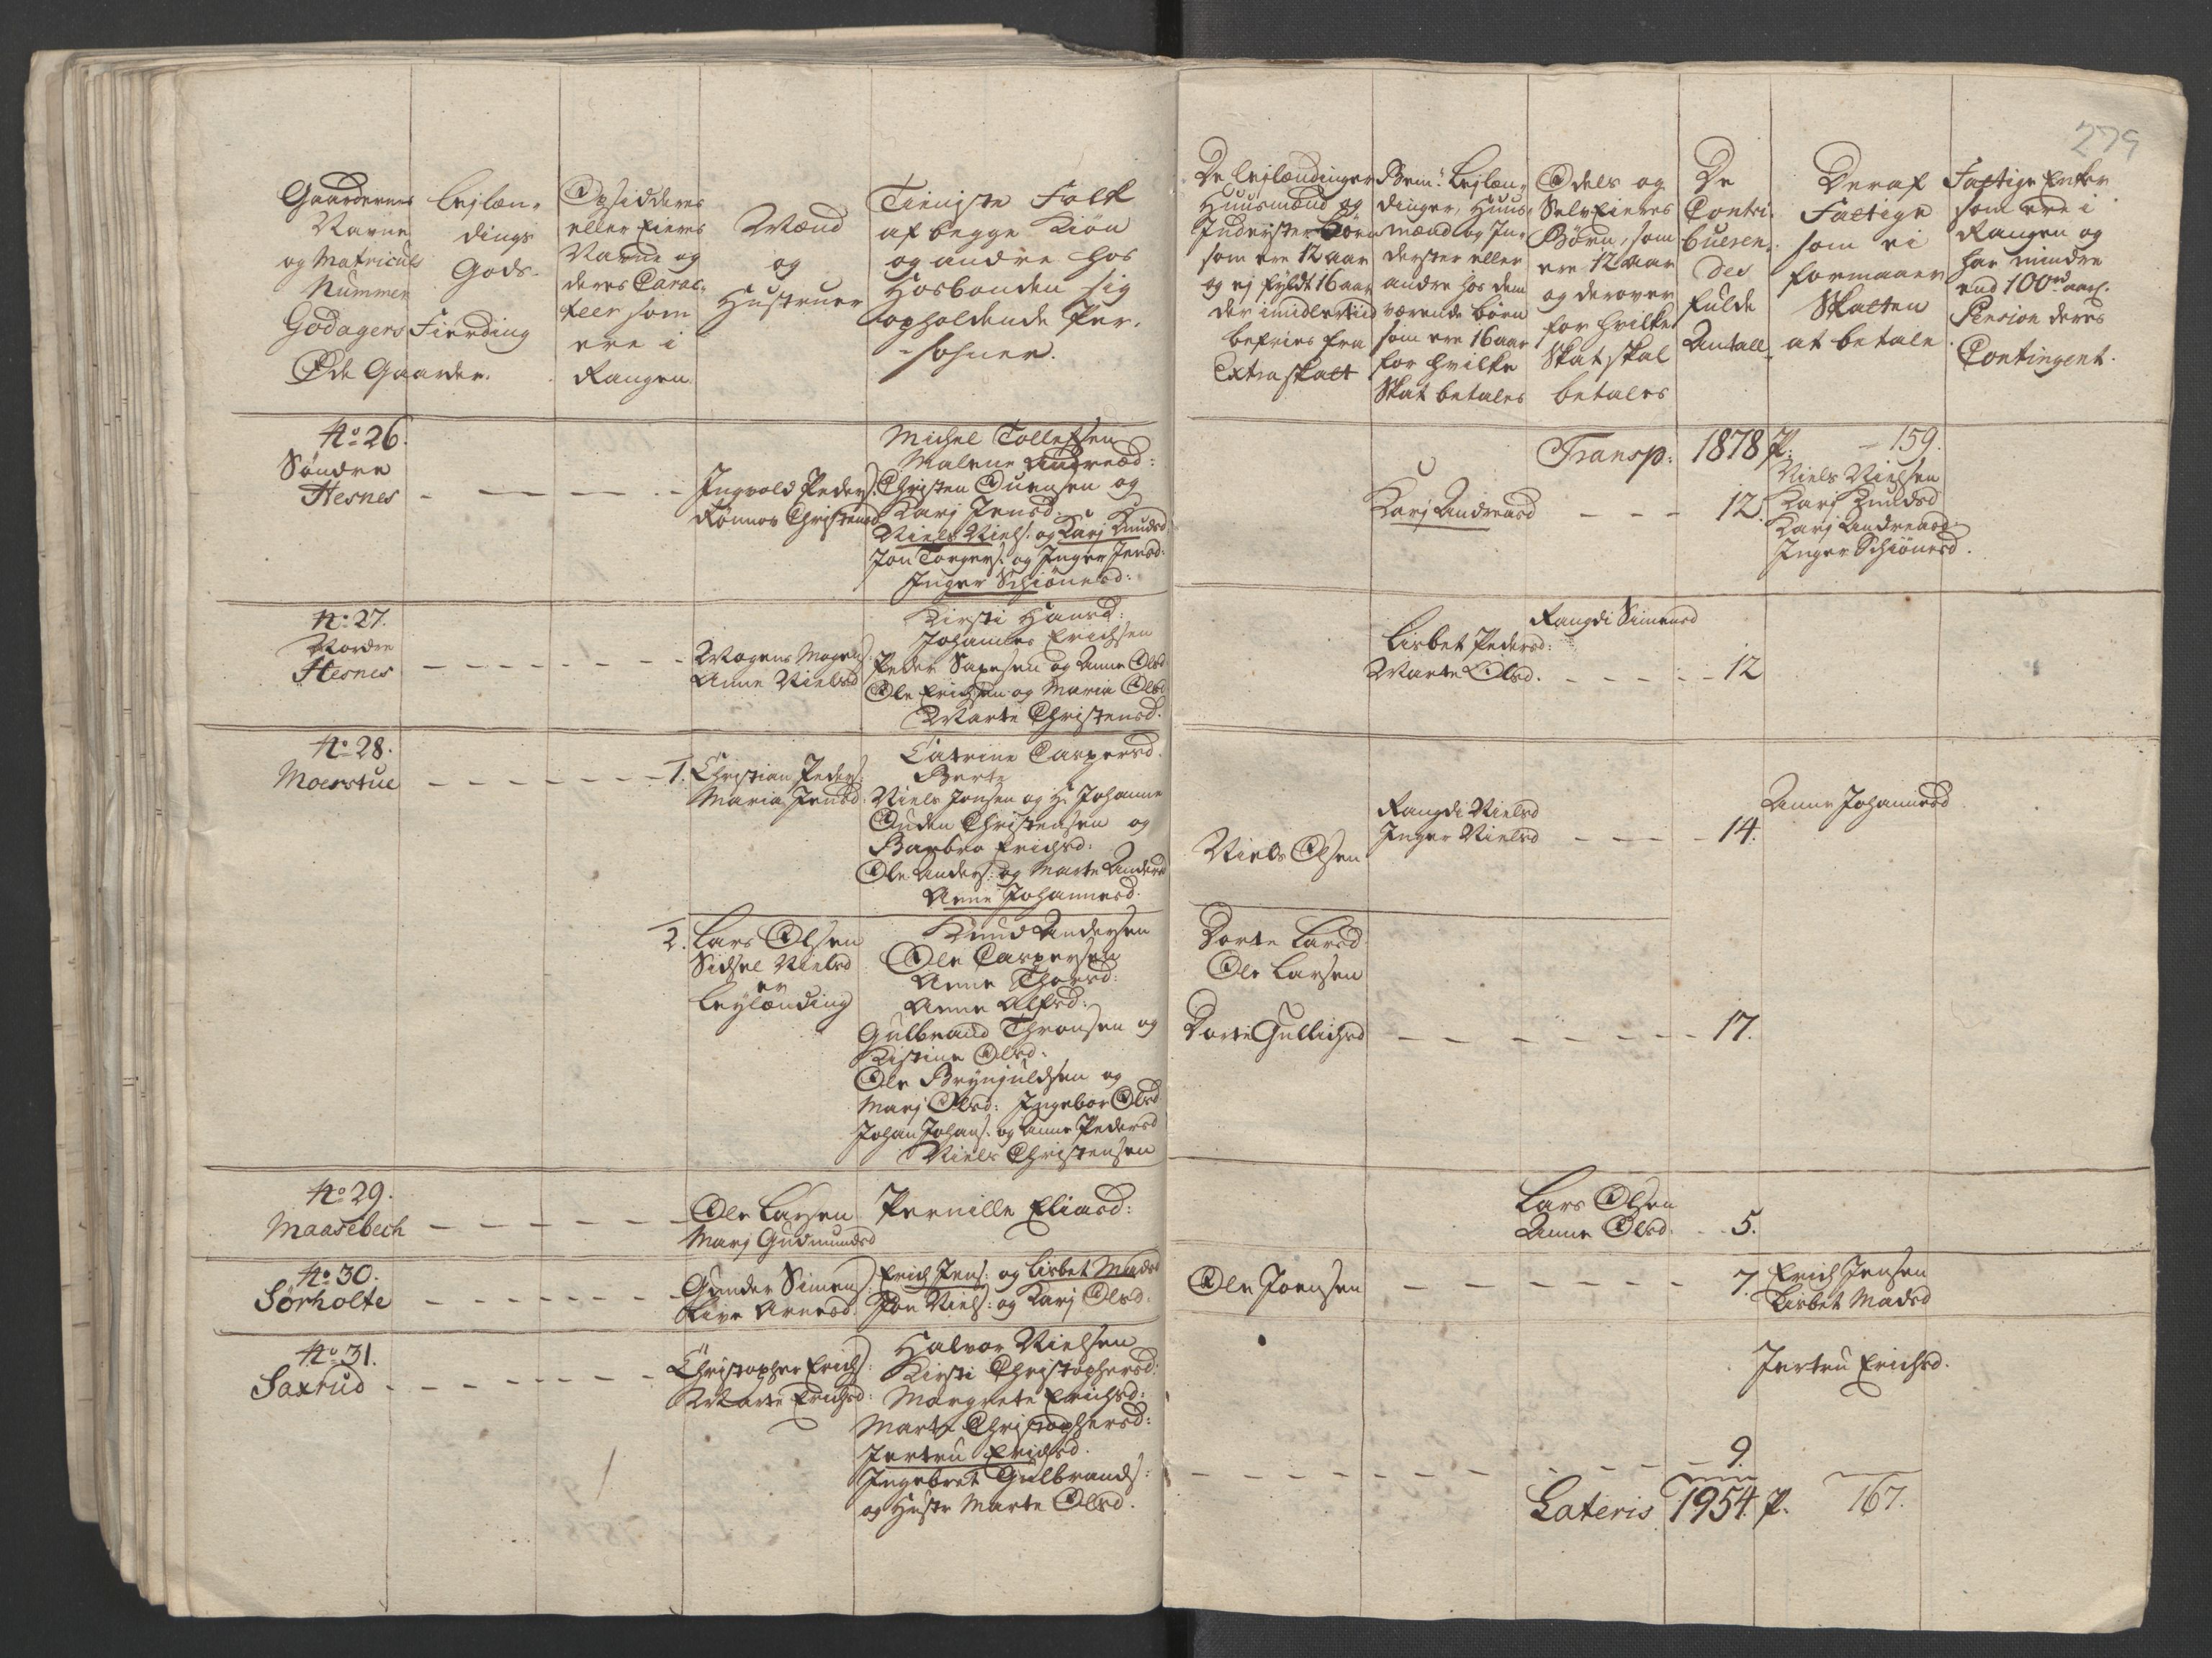 279
Gaardernes
Navne
og Matriculs
Nummer
Lejlæn-
dings
Gods.
Opsiddere
eller Eieres
Navne og
deres Carac-
teer som
ere i
Rangen
Mænd
og
Hustruer
Tieniste Folk
af begge Kiøn
og andre hos
Hosbonden sig
opholdende Per-
sohner.
De Lejlændinger
Huusmænd og
Inderster Børn
som ere 12 aar
og ej fyldt 16 aar
der imidlertiid
befries fra
Extraskatt
Bem: Lejlæn-
dinger, Huus-
mænd og In-
derster eller
andre hos dem
værende børn
som ere 16 aar
for hvilke
Skat betales
Odels og
Selveieres
Børn, som
ere 12 aar
og derover
for hvilke
Skat skal
betales
De
Contri-
bueren-
des
fulde
Antall
Deraf
Fattige
som ei
formaaer
Skatten
at betale
Fattige Enker
som ere i
Rangen og
har mindre
end 100 rd aarl.
Pension deres
Contingent.
Godagers Fierding
Øde Gaarder.
No 26.
Søndre
Hesnes
Ingvold Peders:
Rønnov Christensd
Michel Tollefsen
Malene Andreæd:
Christen Ouensen og
Karj Jensd:
Niels Niels: og Karj Knudsd
Jon Torgers: og Inger Jensd:
Inger Schiønesd:
Karj Andreasd
Transp: 1878 P: 159.
12.
Niels Nielsen
Karj Knudsd
Karj Andreasd
Inger Schiønesd.
No 27.
Nordre
Hesnes
Mogens Mogens:
Anne Nielsd
Kirsti Hansd:
Johannes Erichsen
Peder Saxesen og Anne Olsd
Ole Erichsen og Maria Olsd
Marte Christensd.
Lisbet Pedersd:
Marte Olsd.
Rangdi Simensd
12
No 28.
Moerstue
1. Christian Peders:
Maria Jensd:
Catrine Caspersd.
Berte
Niels Jonsen og H: Johanne
Ouden Christensen og
Barbro Erichsd:
Ole Anders: og Marte Andersd
Anne Johannesd.
Niels Olsen
Rangdi Nielsd
Inger Nielsd
14.
Anne Johannesd
2. Lars Olsen
Sidsel Nielsd
er
Leylænding
Knud Andersen
Ole Caspersen
Anne Thorsd:
Anne Alfsd:
Gulbrand Thronsen og
Kistine Olsd:
Ole Brynjuldsen og
Marj Olsd: Ingebor Olsd
Johan Johans: og Anne Pedersd
Niels Christensen
Dorte Larsd
Ole Larsen
Dorte Gullichsd
17.
No 29.
Maasebech
Ole Larsen
Marj Gudmundsd
Pernille Eliasd:
Lars Olsen
Anne Olsd.
5.
No 30.
Sörholte
Gunder Simens
Live Arnesd:
Erich Jens: og Lisbet Madsd
Jon Niels: og Karj Olsd.
Ole Joensen
7.
Erich Jensen
Lisbet Madsd
No 31.
Saxrud
Christopher Erichs:
Marte Erichsd:
Halvor Nielsen
Kirsti Christophersd:
Margrete Erichsd:
Marte Christophersd:
Jertru Erichsd.
Ingebret Gulbrands:
og Hustr Marte Olsd.
Jertru Erichsd.
9.
Lateris 1954. P. 167.